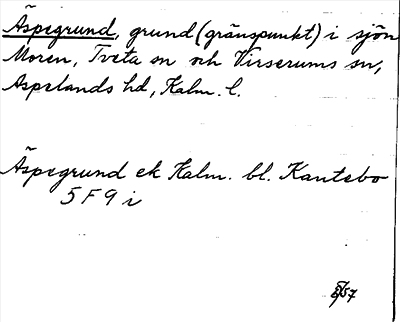 Äspegrund, grund (gränspunkt) i sjön
Moren, Tveta sn och Virserums sn,
Aspelands hd, Kalm. l.
Äspegrund ek Kalm. bl. Kantebo
5 F 9 i